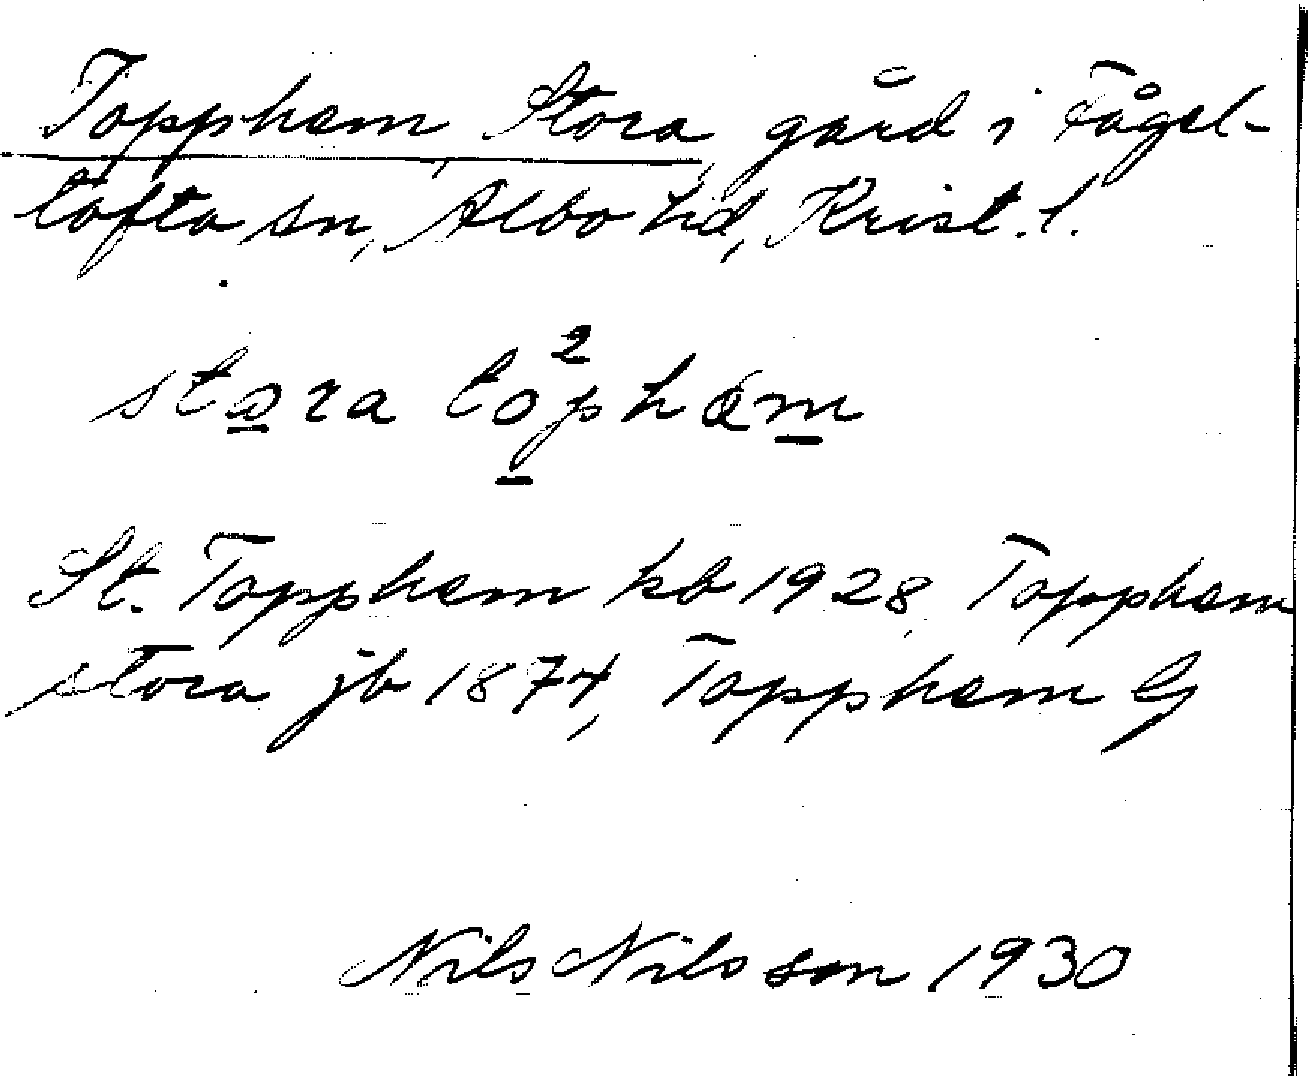 Topphem, Stora, gård i Fågel-
tofta sn, Albo hd, Krist. l.
stora to²phæm
St. Topphem kb 1928, Topphem
stora jb 1874, Topphem G
Nils Nilsson 1930